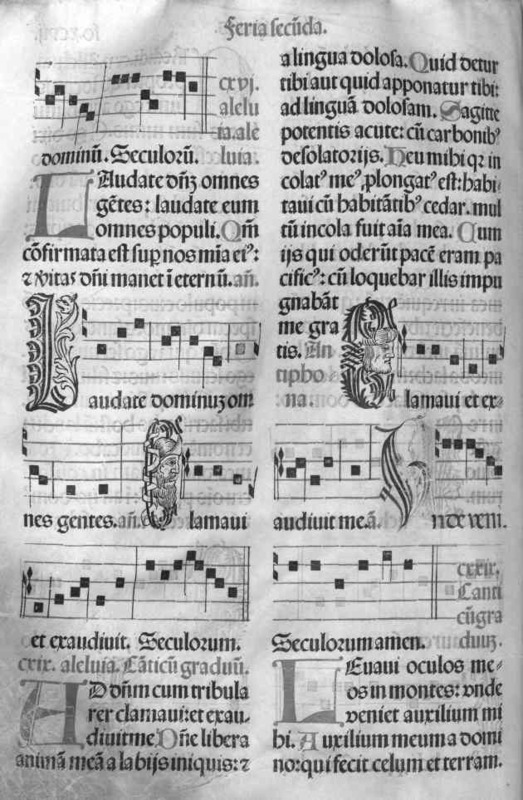 Feria secūda.
cxvj.
alelu
ia.ale
dominū. Seculorū. luia.
Laudate dn̄ʒ omnes
gētes: laudate eum
omnes populi. Qm̄
cōfirmata est suꝑ nos mīa ei⁹:
⁊ vitas dn̄i manet ī eternū. an̄.
Laudate dominuʒ om
nes gentes. an̄. Clamaui
et exaudiuit. Seculorum.
cxix. aleluia. Cāticū graduū.
AD dn̄m cum tribula
rer clamaui: et exau
diuit me. Dn̄e libera
animā meā a labijs iniquis: ⁊
a lingua dolosa. Quid detur
tibi aut quid apponatur tibi:
ad linguā dolosam. Sagitte
potentis acute: cū carbonib⁹
desolatorijs. Heu mihi qꝛ in
colat⁹ me⁹ ꝓlongat⁹ est: habi
taui cū habitātib⁹ cedar. mul
tū incola fuit aīa mea. Cum
ijs qui oderūt pacē eram pa
cific⁹: cū loquebar illis impu
gnabāt
me gra
tis. An
tipho
na. Clamaui et ex
audiuit me. ā. Vnde veni.
cxxix.
Canti
cū gra
Seculorum amen. duuʒ.
Leuaui oculos me
os in montes: vnde
veniet auxilium mi
hi. Auxilium meum a domi
no: qui fecit celum et terram.